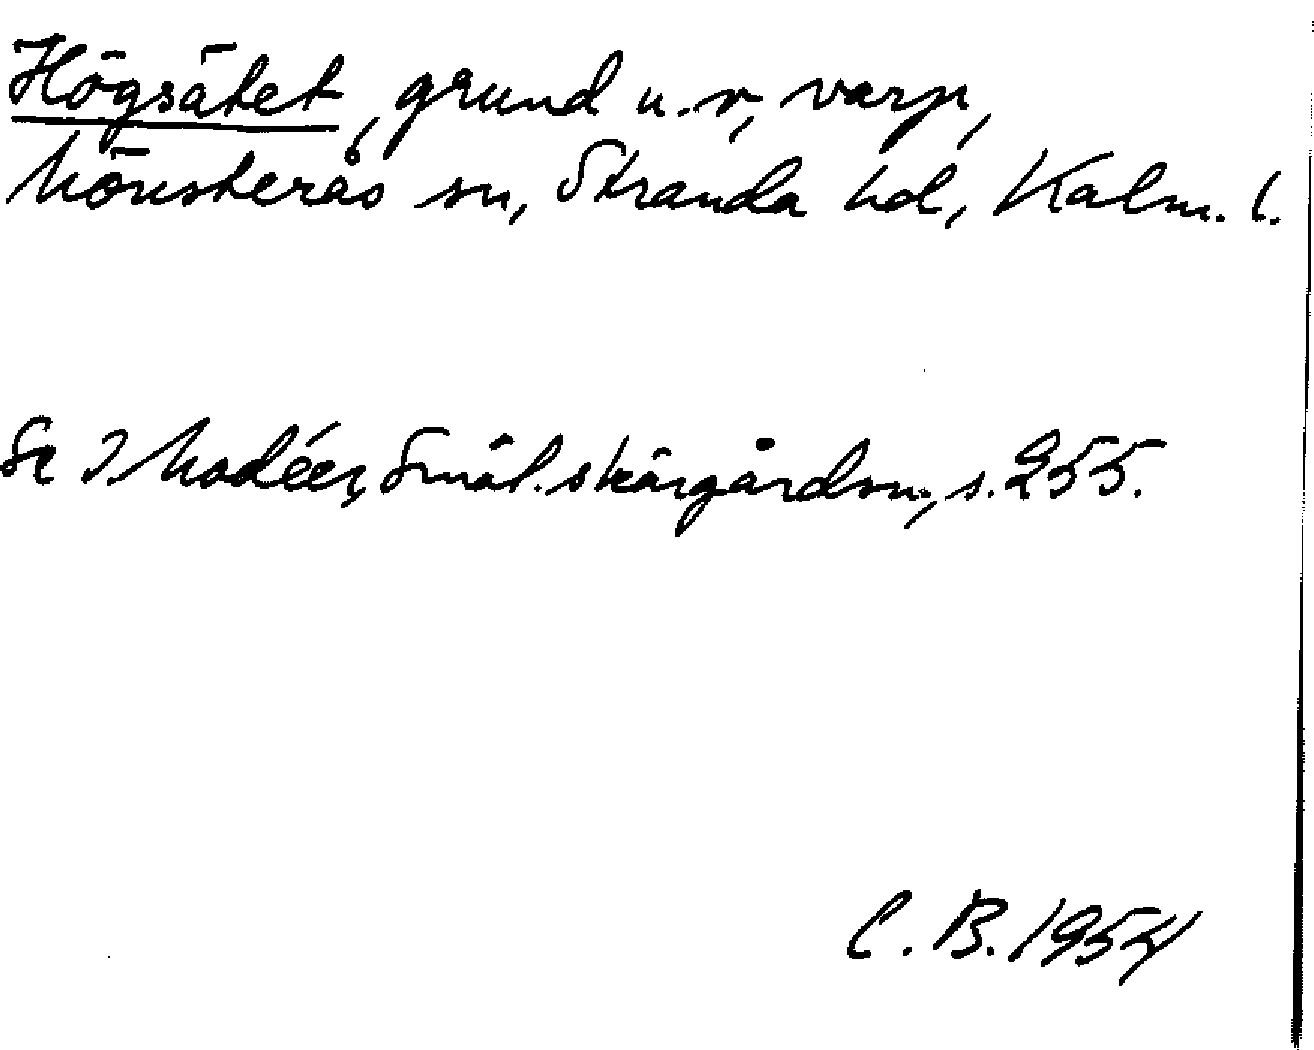 Högsätet, grund u.v, varp,
Mönsterås sn, Stranda hd, Kalm. l.
Se I Modéer, Smål. skärgårdsn., s. 255.
C. B. 1954